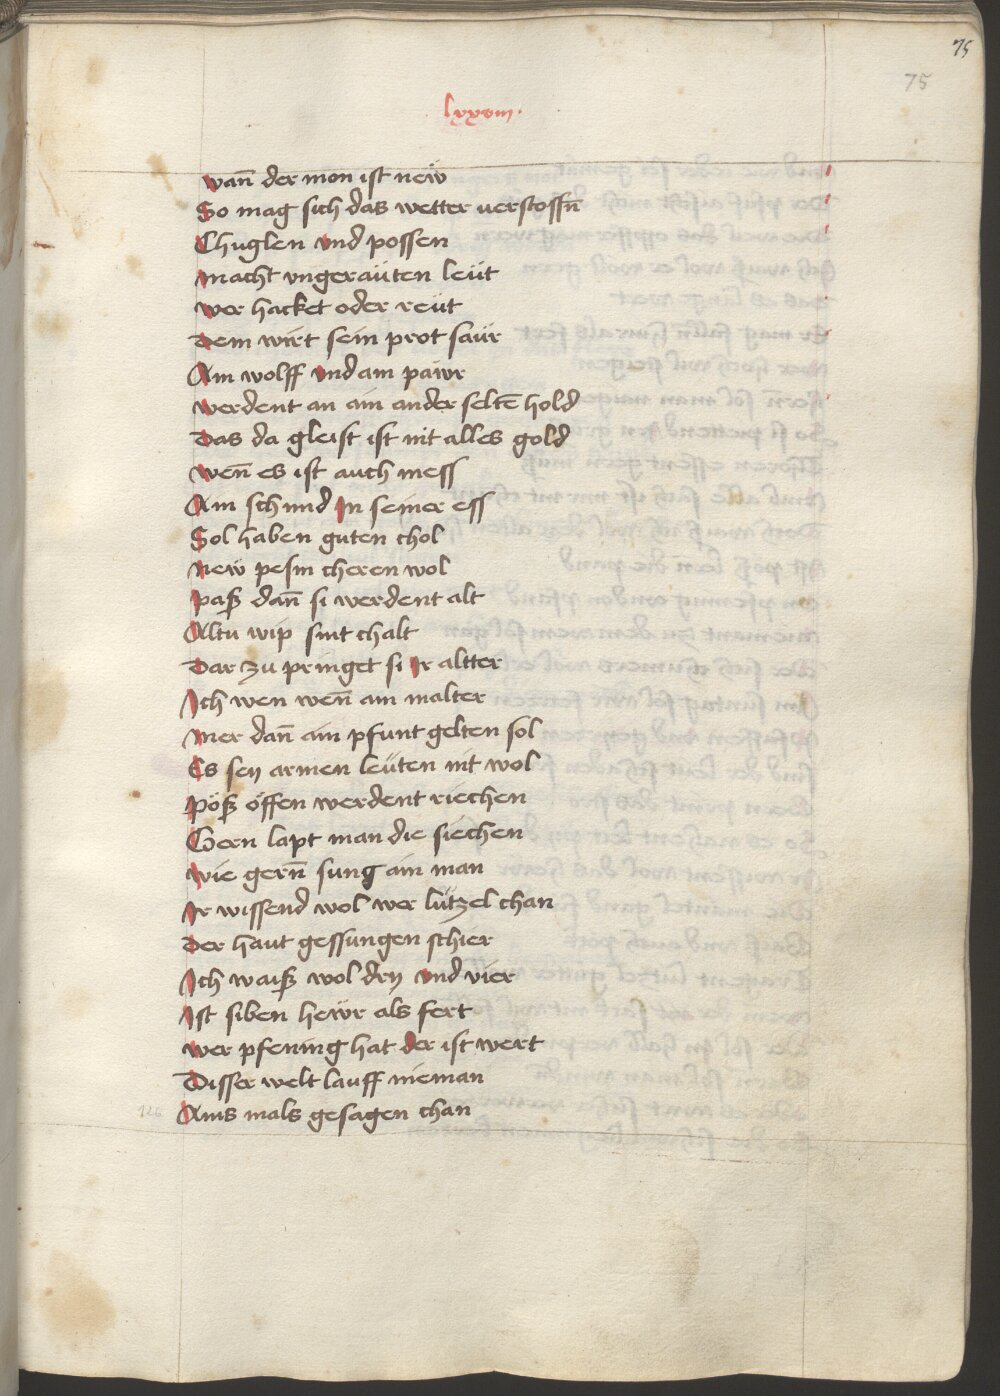 75
75
lxxviii.
wan̄ der mon ist neẅ
So mag sich das wetter uerstossn̄
Chuglen vnd possen
macht vngeraüten leüt
wer hacket oder reüt
Dem wirt sein prot saür
Ain wolff vnd ain paẅr
werdent an ain ander selten̄ hold
Das da gleist ist nit alles gold
wen̄ es ist auch mess
Ain schmid Jn seiner ess
Sol haben guten chol
neẅ pesm cheren wol
paß dan̄ si werdent alt
Altu wip sint chalt
Dar zu pringet si Ir altter
Ich wen wen̄ ain malter
mer dan̄ ain pfunt gelten sol
Es sey armen leüten nit wol
Pöß öffen werdent riechen
Gern lapt man die siechen
wie gern̄ sung ain man
Ir wissend wol wer lützel chan
Der haut gessungen schier
Ich waiß wol dry vnd vier
Ist siben heẅr als fert
wer pfening hat der ist wert
Disser welt lauff nieman
Ains mals gesagen chan